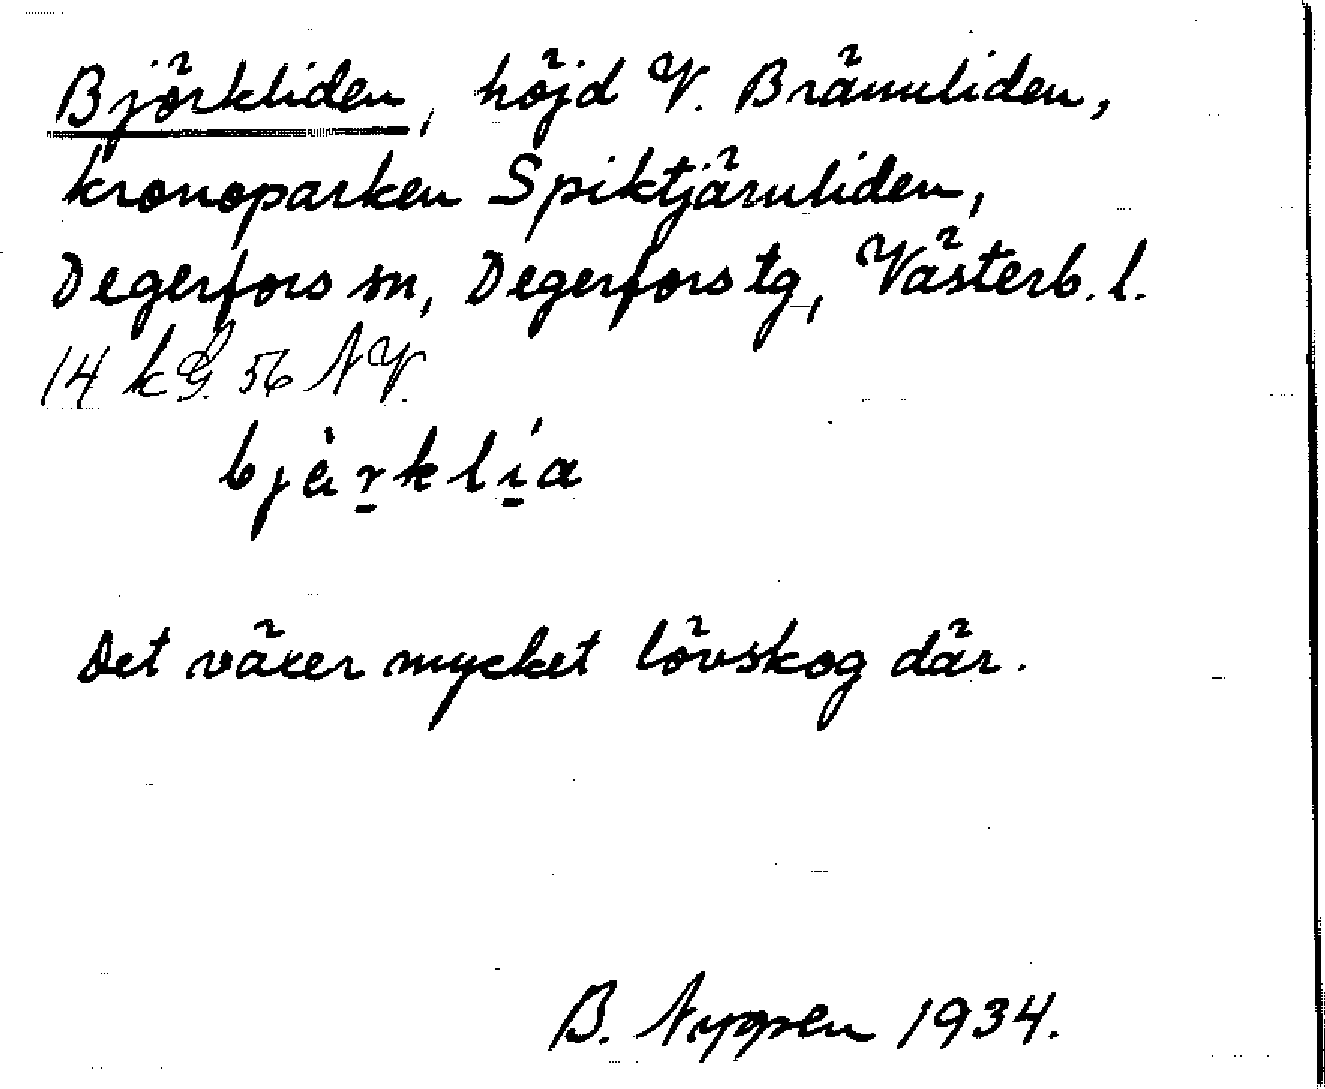 Björkliden, höjd V. Brännliden,
kronoparken Spiktjärnliden,
Degerfors sn, Degerfors tg, Västerb. l.
14 kG. 56 NV.
bjȧ̀r̠klí̠a
Det växer mycket lövskog där.
B. Nygren 1934.